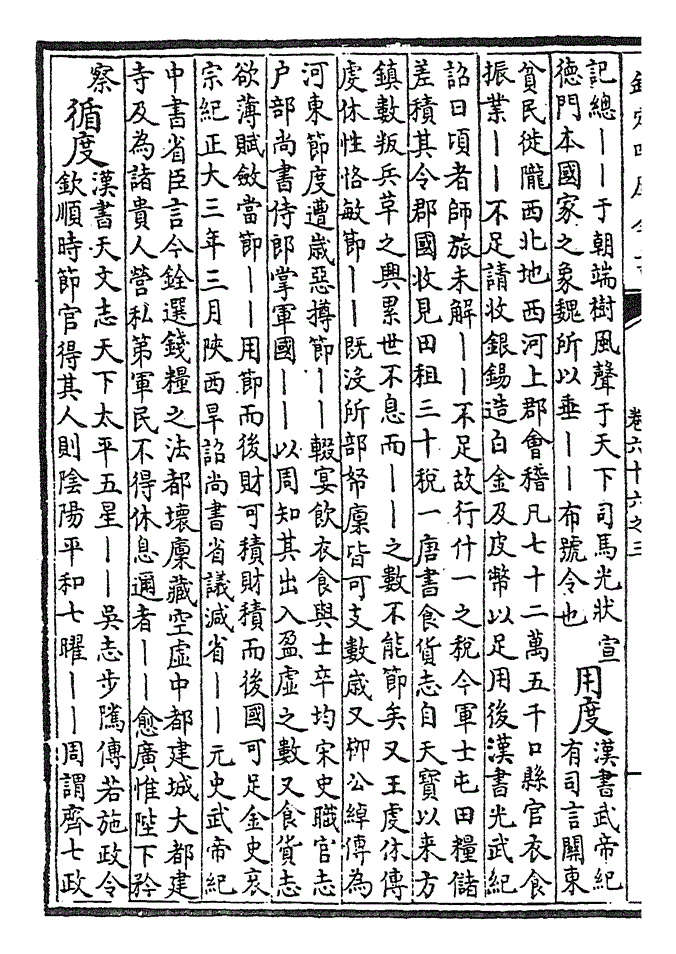 欽定四庫全書
卷六十六之三
記總丨丨于朝端樹風聲于天下司馬光狀宣
德門本國家之象魏所以垂丨丨布號令也
用度
漢書武帝紀
有司言關東
貧民徙隴西北地西河上郡會稽凡七十二萬五千口縣官衣食
振業丨丨不足請收銀錫造白金及皮幣以足用後漢書光武紀
詔曰頃者師旅未解丨丨不足故行什一之稅今軍士屯田糧儲
差積其令郡國收見田租三十稅一唐書食貨志自天寶以来方
鎮數叛兵革之興累世不息而丨丨之數不能節矣又王虔休傳
虔休性恪敏節丨丨既没所部帑廩皆可支數歲又栁公綽傳為
河東節度遭歲惡撙節丨丨輟宴飲衣食與士卒均宋史職官志
户部尚書侍郎掌軍國丨丨以周知其出入盈虚之數又食貨志
欲薄賦斂當節丨丨用節而後財可積財積而後國可足金史哀
宗紀正大三年三月陜西旱詔尚書省議減省丨丨元史武帝紀
中書省臣言今銓選錢糧之法都壊廩藏空虚中都建城大都建
寺及為諸貴人營私第軍民不得休息邇者丨丨愈廣惟陛下矜
察
循度
漢書天文志天下太平五星丨丨吳志步隲傳若施政令
欽順時節官得其人則陰陽平和七曜丨丨周謂齊七政